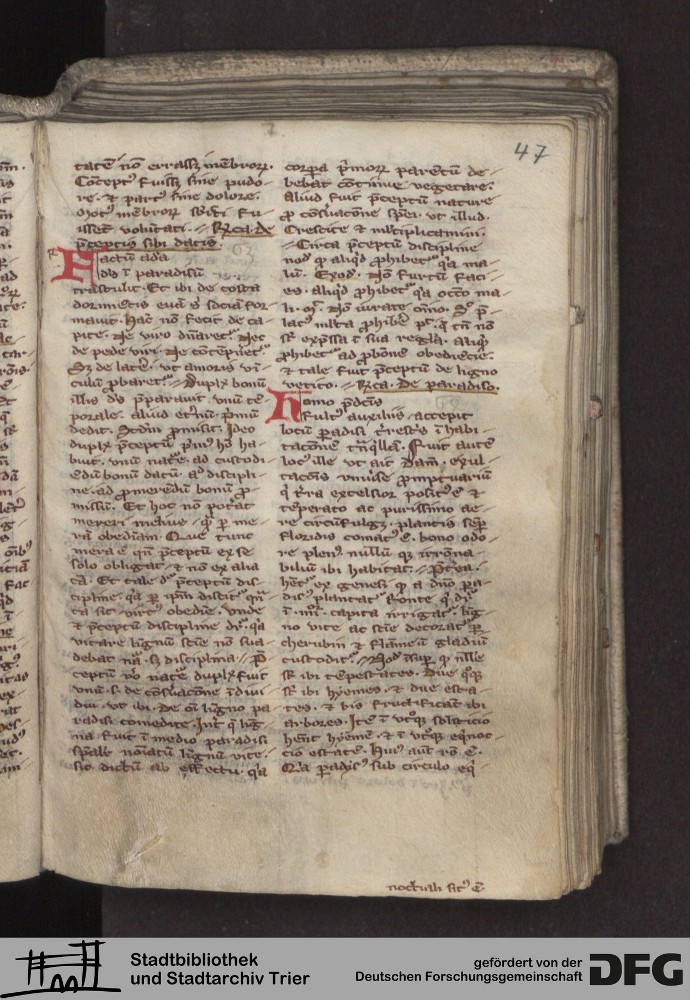 47
tatē nō errassꝫ mēbroꝝ.
Cōcept⁹ fuissꝫ sine pudo-
re. ⁊ part⁹ sine dolore.
mēbroꝝ
issēt voluntati. Rica. de
p̄ceptis sibi datis.
Factū adā
dē ī paradisū
trāstulit. Et ibi de costa
dormiētis euā ē sociā for-
mauit. Hāc nō fecit de ca-
pite. Ne viro dn̄aret᷑. Nec
de pede viri. Ne cōtēpnet᷑.
Sꝫ de late. vt amoris vī-
culū ꝓbaret᷑. Duplex bonū
illis de⁹ p̄parauit. vnū tē-
porale. aliud et̄nū. p̄mū
dedit. Scd̄m ꝓmisit. Ideo
duplx p̄ceptū p̄m⁹ hō ha-
buit. vnū nat̄e. ad custodi-
ēdū bonū datū. discipli-
ne. ad ꝓmerēdū bonū ꝓ-
missū. Et hoc nō pot̄at
mereri melius. qͣ ꝑ me-
rā obediam. Que tunc
mera ē qn̄ p̄ceptū ex se
solo obligat. ⁊ nō ex alia
cā. Et tale dr̄ p̄ceptū dis-
cipline. qꝛ ꝑ ip̄m discit᷑ qn̄-
ta sit virt⁹ obedie. vnde
⁊ p̄ceptū discipline dr̄. qꝛ
vitare lignū sciē nō sua-
debat nā. sꝫ disciplina. P̄-
ceptū v̄o nat̄e duplx fuit
vnū. s. de cōs̄uacōne īdiui-
dui. vt ibi. De oī ligno pa-
radisi comedite. Int̄ q̄ lig-
na fuit ī medio paradisi
sp̄ale noīatū lignū vite.
sic dictū ab effectu. qꝛ
corpꝑa p̄moꝝ parētū de-
bebat cōtinue vegetare.
Aliud fuit p̄ceptū nature
ꝓ cōs̄uacōne sp̄ei. vt illud.
Crescite ⁊ mltiplicamini.
Circa p̄ceptū discipline
nō q̄ aliqd ꝓhibet᷑ qꝛ ma-
lū. Exod. Nō furtū faci-
es. aliqd ꝓhibet᷑ qꝛ occo ma-
li. Nō iurate om̄o.
lat⁹ mlta ꝓhibē pt̄. q̄ tn̄ nō
sr̄ exp̄ssa ī sua regla. aliqd
ꝓhibet᷑ ad ꝓbōne obediēcie.
⁊ tale fuit p̄ceptū de ligno
vetito. Rica. De paradiso.
Homo p̄dc̄is
fult⁹ auxiliis. accepit
locū ꝑadisi t̄rest̄s ī habi-
tacōnē tn̄qͥllā. Fuit autē
loc⁹ ille vt ait Dam. exul-
tacōis vniuse ꝓmptuariū
q̄ t̄ra excelsior posit⁹ ē. ⁊
tēperato ac purissimo ae-
re circūfulgꝫ. plantis sēꝑ
floridis comat⁹ ē. bono odo-
re plen⁹. nullū qͥꝫ irrōna-
biliū ibi habitat. Pt̄ea.
hēt᷑ ex genesi q̄ a dn̄o ꝑa-
dis⁹ plantat᷑. fonte q̄ dr̄
ī iiii. capita irrigat᷑. lig-
no vite ac sciē decorat᷑ ꝑ
cherubin ⁊ flāmeū gladiū
custodit᷑.
sr̄ ibi tēpestates. Due qͥꝫ
sr̄ ibi hyemes. ⁊ due esta-
tes. ⁊ bis fructificāt ibi
arbores. Itē ī vtqꝫ solsticio
hēnt hyemē. ⁊ ī vtqꝫ eqͥnoc-
cio estatē. Hui⁹ aut rō ē.
Qꝛ ꝑadis⁹ sub circulo eqͥ
noctiali sit⁹ ē
Stadtbibliothek
und Stadtarchiv Trier
gefördert von der
Deutschen Forschungsgemeinschaft
DFG